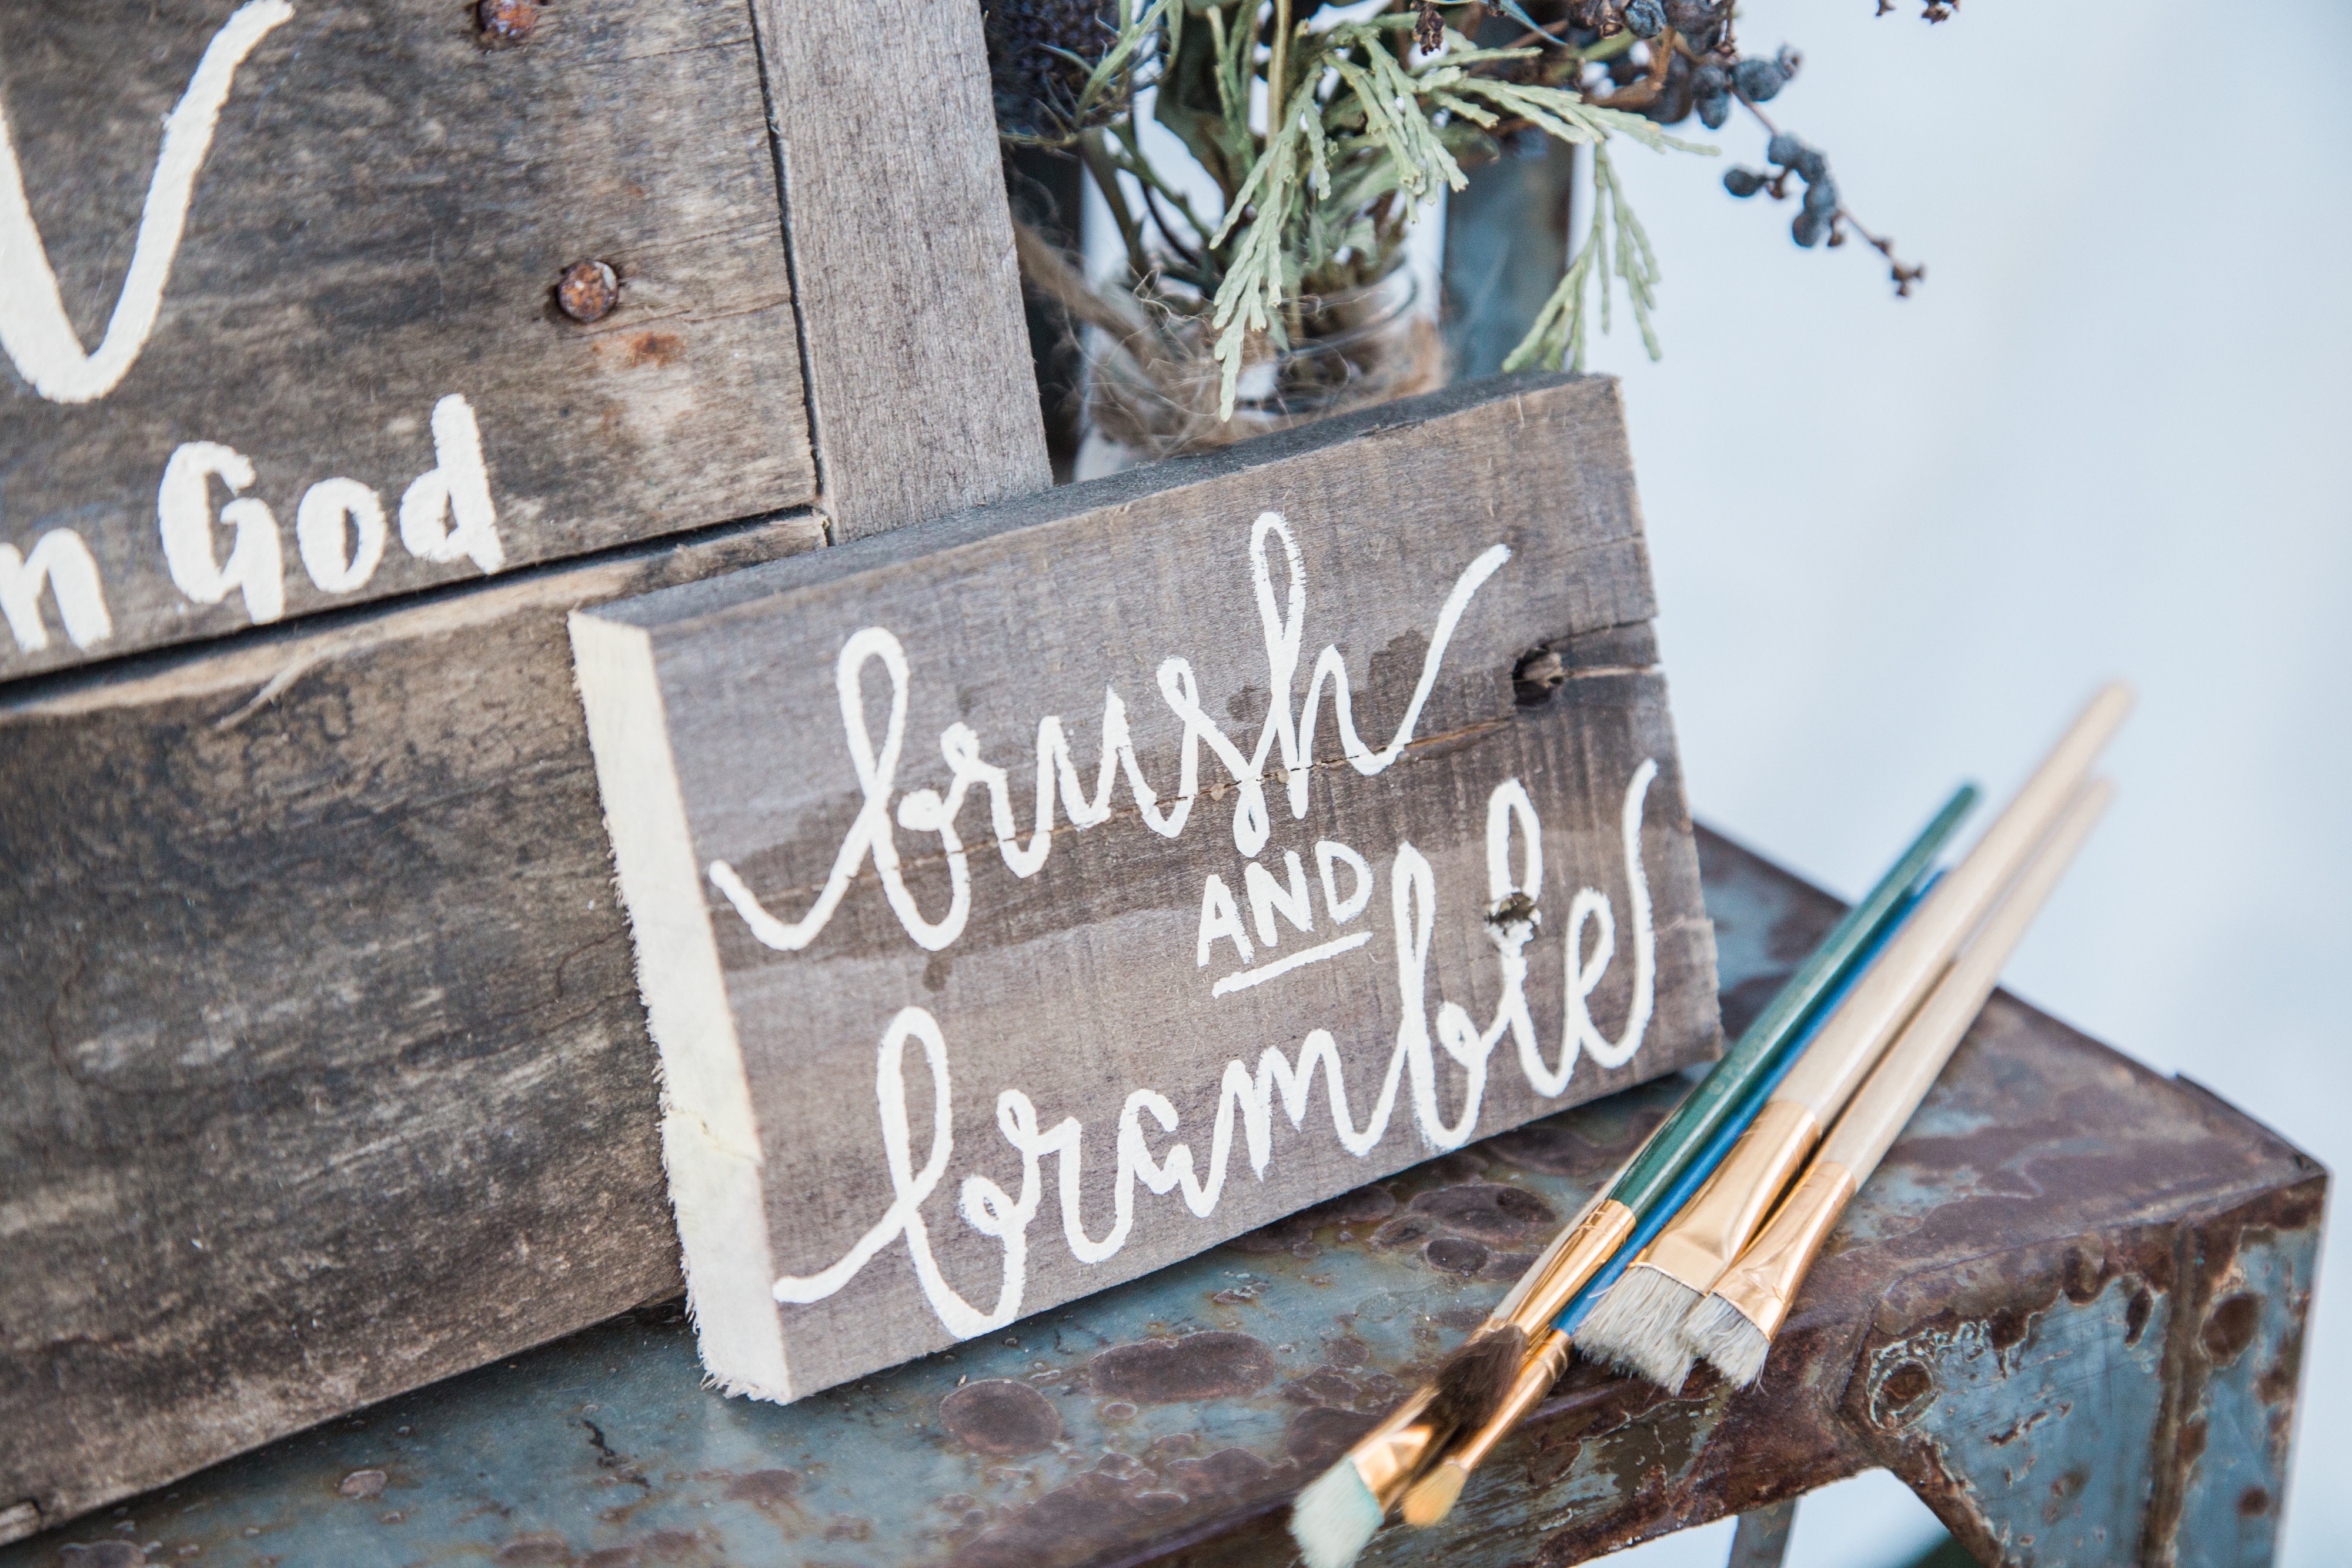 n God
brush
AND
bramble